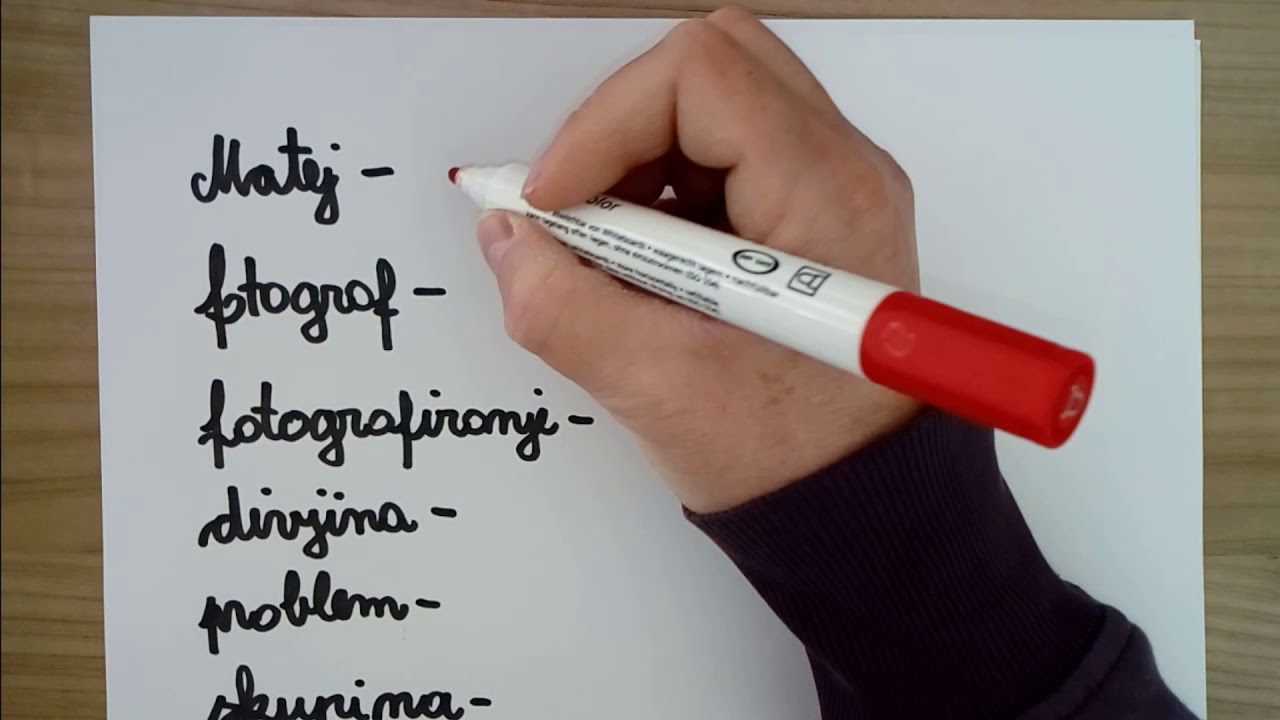 Matej -
fotograf -
fotografiranje -
divjina -
problem -
skupina -
olor